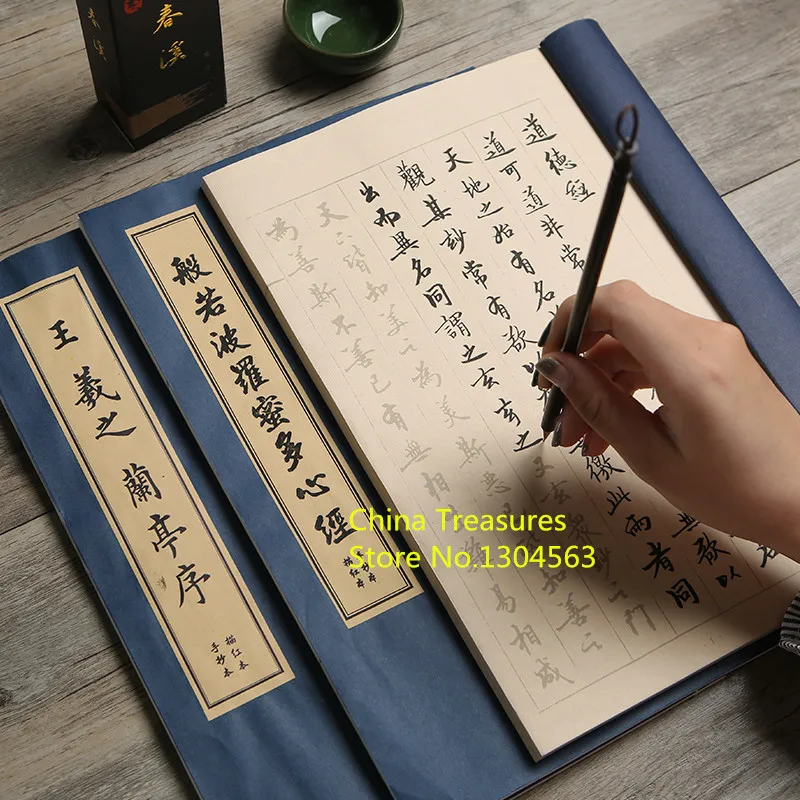 春溪
道德經
道可道非常
天地之始有名
觀其妙常有欲以
徼此兩者同
出而異名同謂之玄玄之又玄眾妙之門
天下皆知美之為美斯惡已皆知善之
為善斯不善已有無相生難易相成
般若波羅蜜多心經
描红本
手抄本
王羲之蘭亭序
描红本
手抄本
China Treasures
Store No.1304563